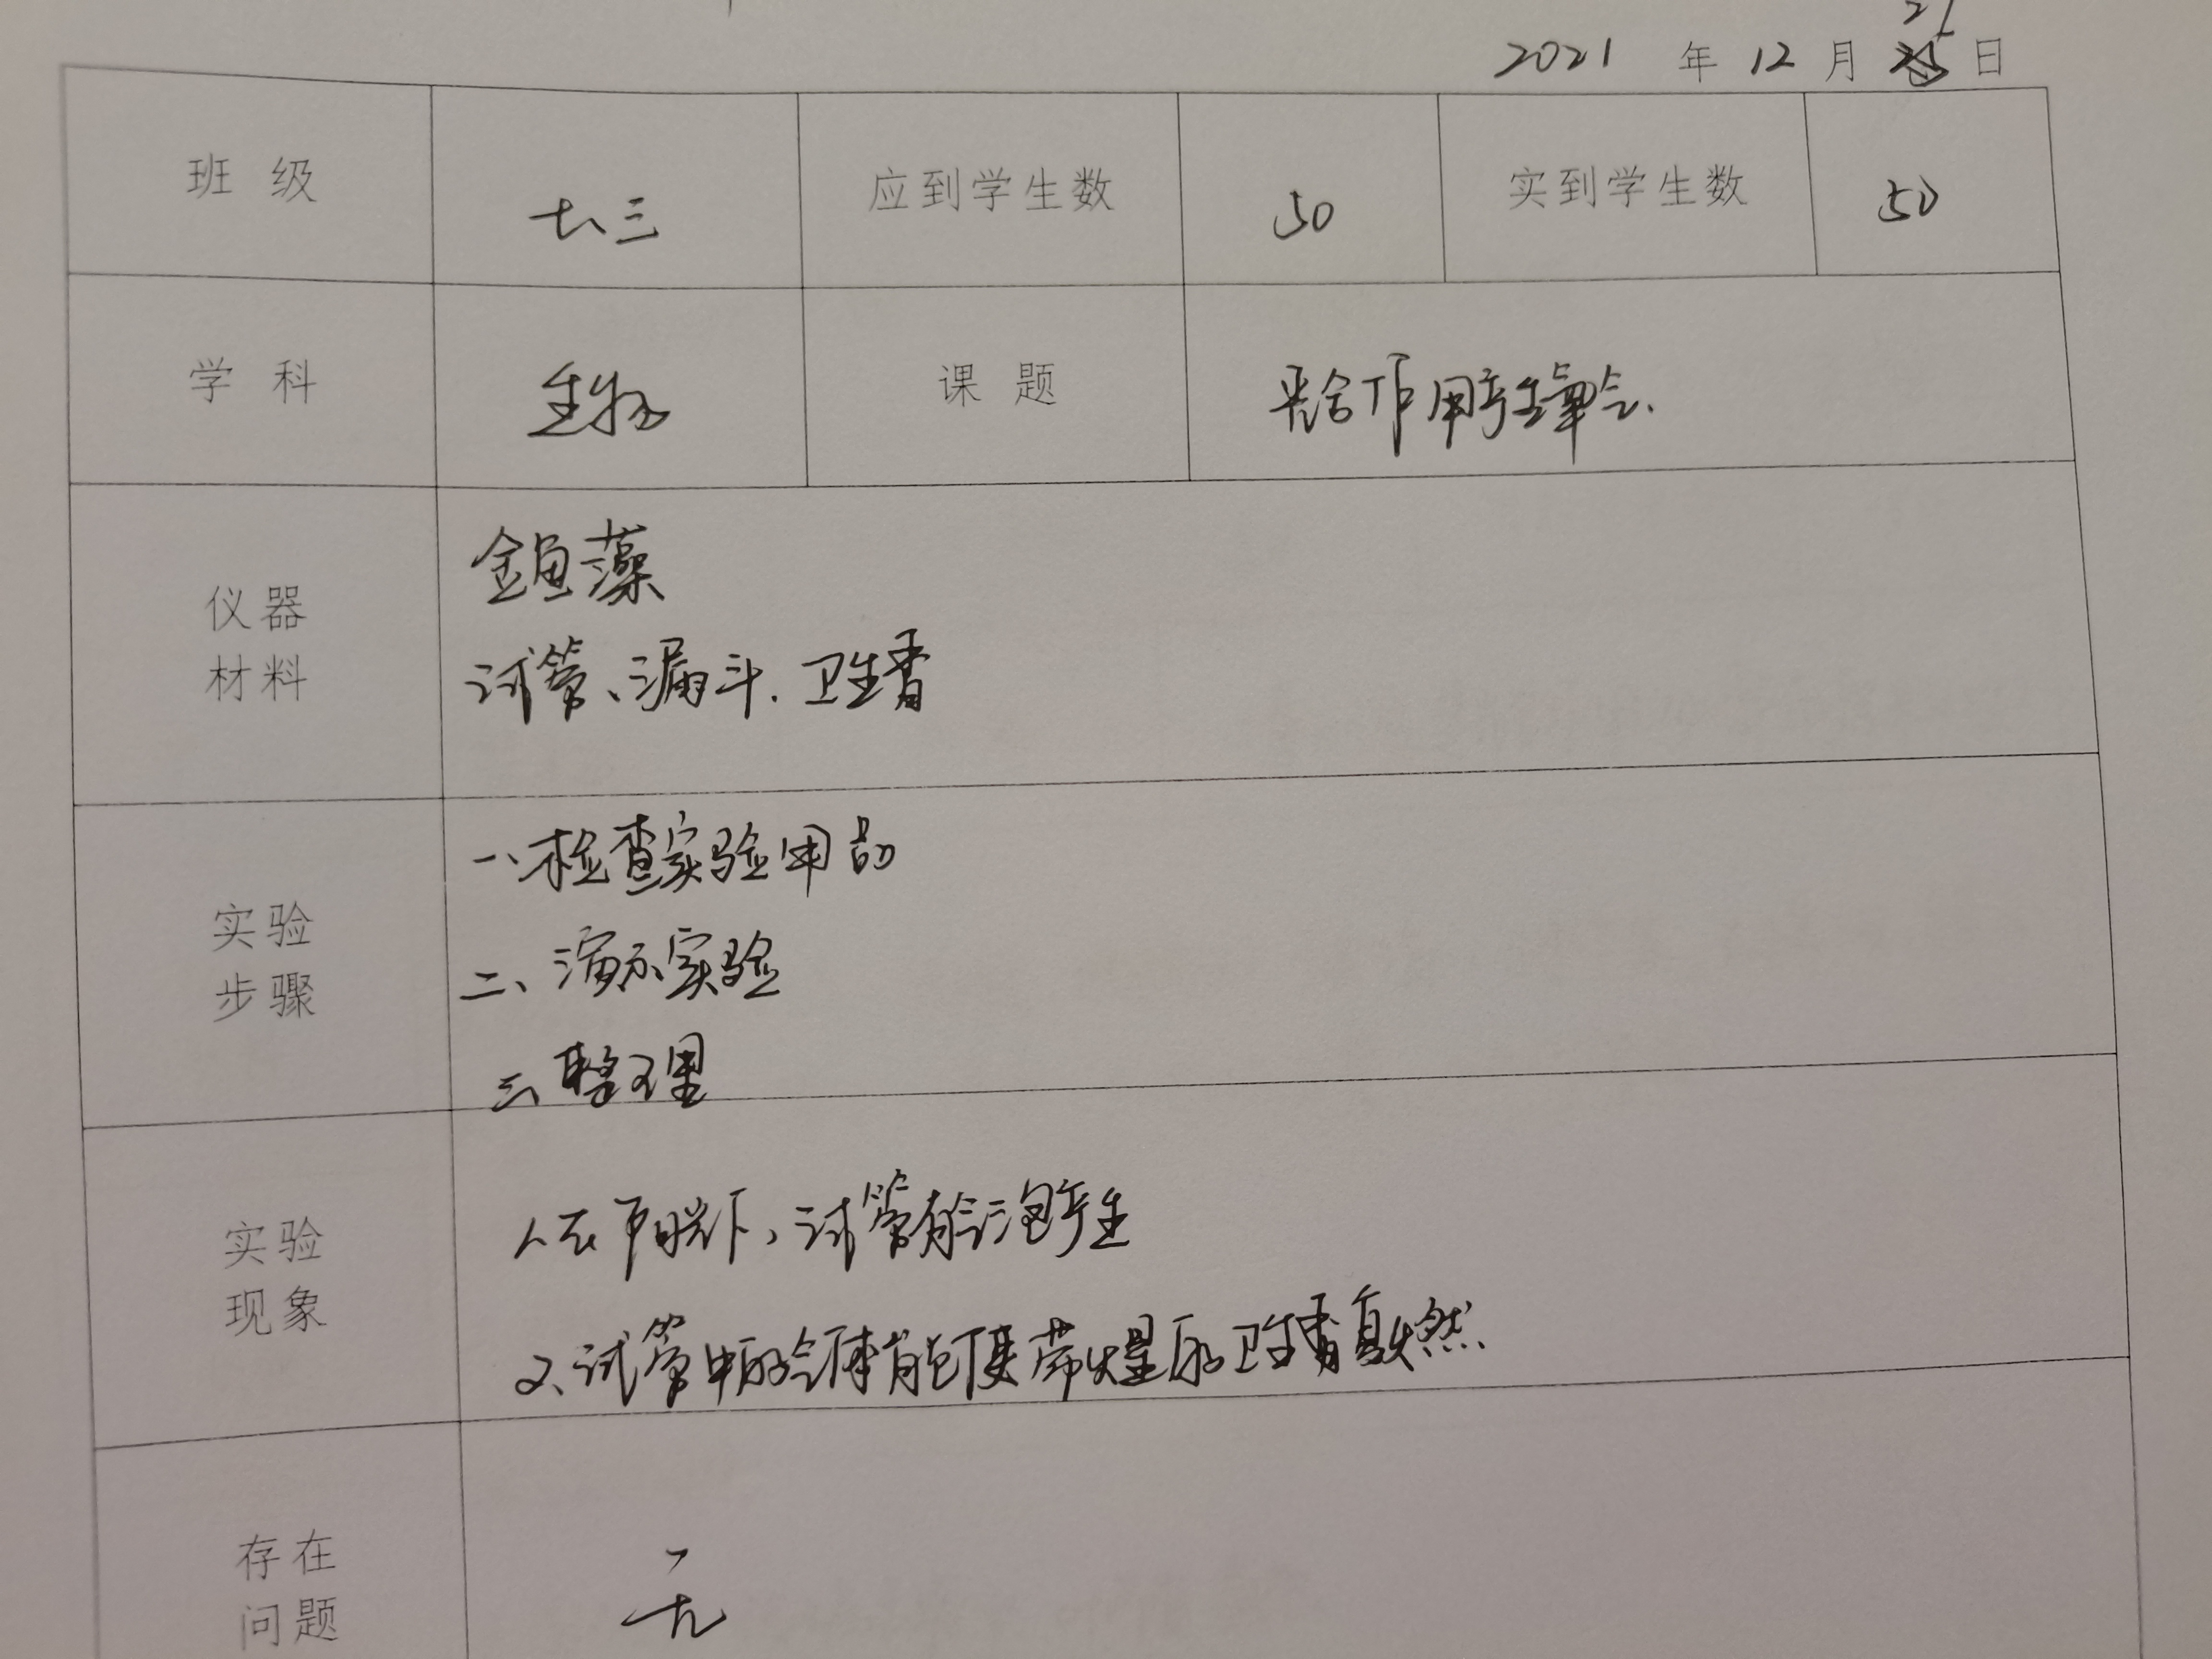 2021 年 12 月 21 日
班级 七、三 应到学生数 50 实到学生数 50
学科 生物 课题 光合作用产生氧气.
仪器
材料
金鱼藻
试管、漏斗.卫生香
实验
步骤
一、检查实验用品
二、演示实验
三、整理
实验
现象
1、在阳光下,试管有气泡产生
2、试管中的气体能使带火星的卫生香复燃.
存在
问题
无